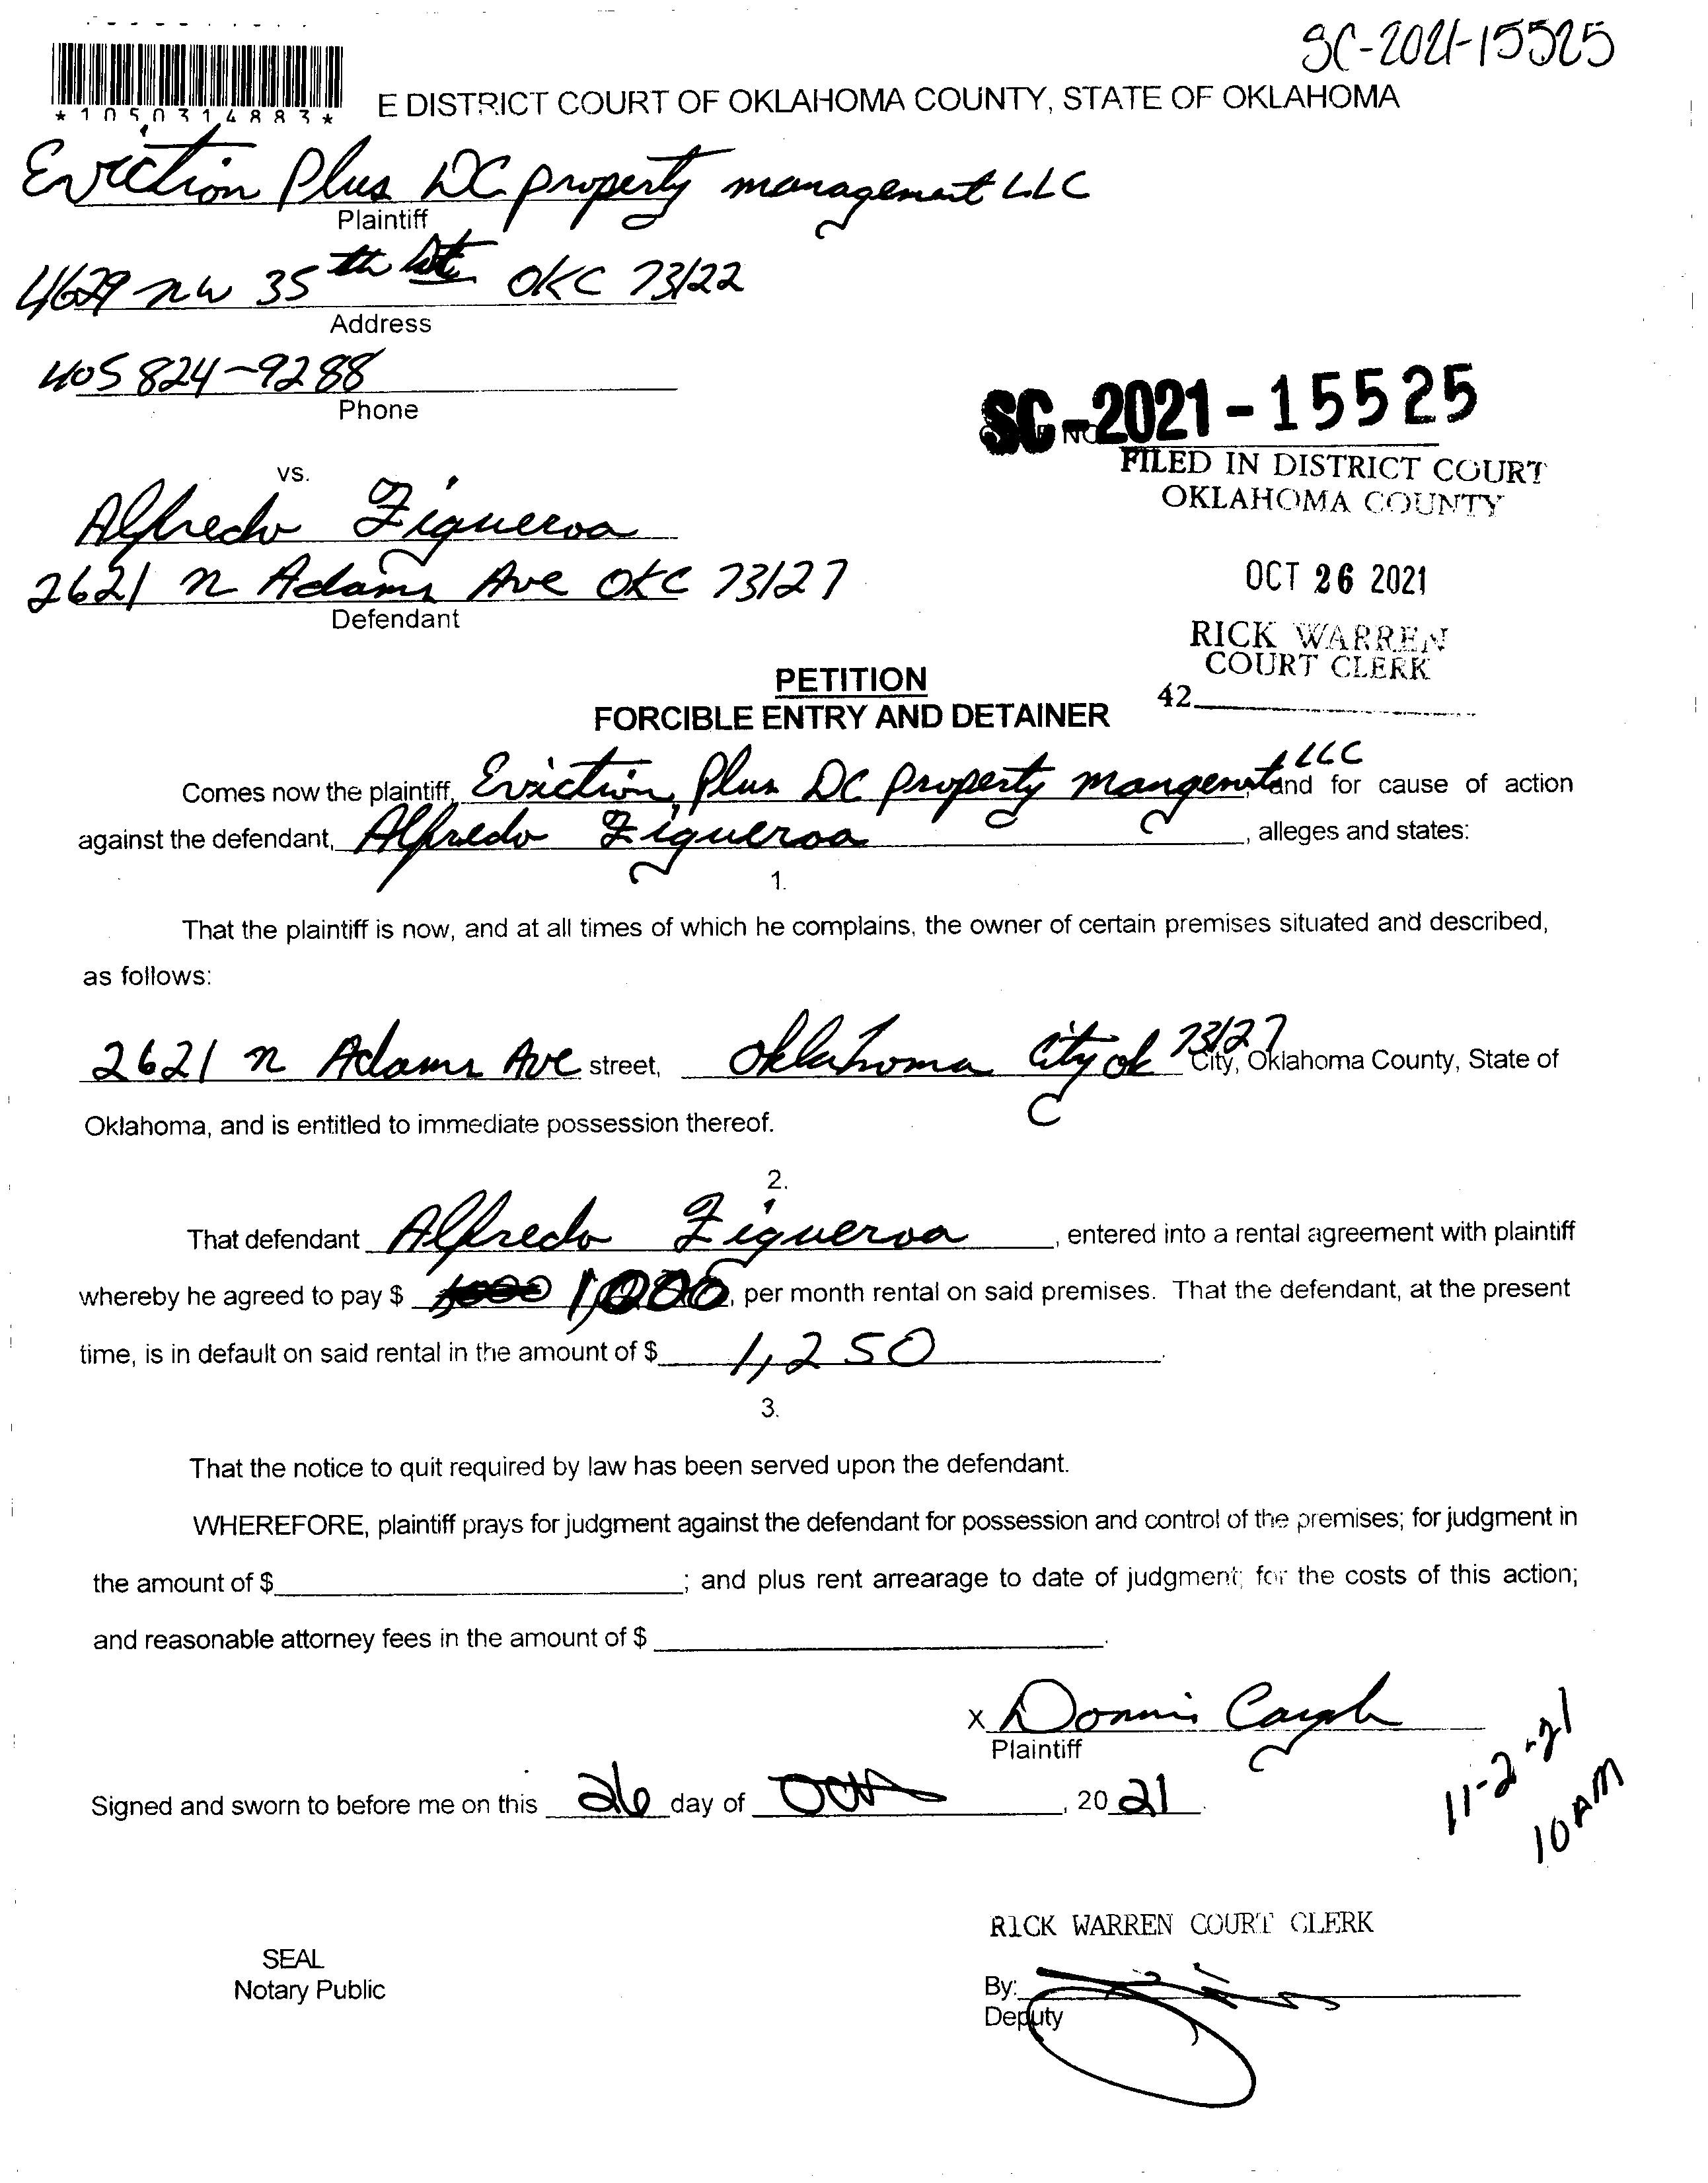 SC-2021-15525
*1050314883*
E DISTRICT COURT OF OKLAHOMA COUNTY, STATE OF OKLAHOMA
Eviction Plus DC property management LLC
Plaintiff
4629 nw 35th St OKC 73122
Address
405 824-9288
Phone
SC-2021-15525
FILED IN DISTRICT COURT
OKLAHOMA COUNTY
OCT 26 2021
RICK WARREN
COURT CLERK
42
vs.
Alfredo Figueroa
2621 n Adams Ave OKC 73127
Defendant
PETITION
FORCIBLE ENTRY AND DETAINER
Comes now the plaintiff, Eviction Plus DC property mangement LLC, and for cause of action
against the defendant, Alfredo Figueroa, alleges and states:
1.
That the plaintiff is now, and at all times of which he complains, the owner of certain premises situated and described,
as follows:
2621 n Adams Ave street, Oklahoma City ok 73127 City, Oklahoma County, State of
Oklahoma, and is entitled to immediate possession thereof.
2.
That defendant Alfredo Figueroa, entered into a rental agreement with plaintiff
whereby he agreed to pay $ 1,000, per month rental on said premises. That the defendant, at the present
time, is in default on said rental in the amount of $ 1,250.
3.
That the notice to quit required by law has been served upon the defendant.
WHEREFORE, plaintiff prays for judgment against the defendant for possession and control of the premises; for judgment in
the amount of $; and plus rent arrearage to date of judgment; for the costs of this action;
and reasonable attorney fees in the amount of $.
X Donnis
Plaintiff
Signed and sworn to before me on this 26 day of Oct, 2021.
11-2-21
10 AM
RICK WARREN COURT CLERK
SEAL
Notary Public
By:
Deputy